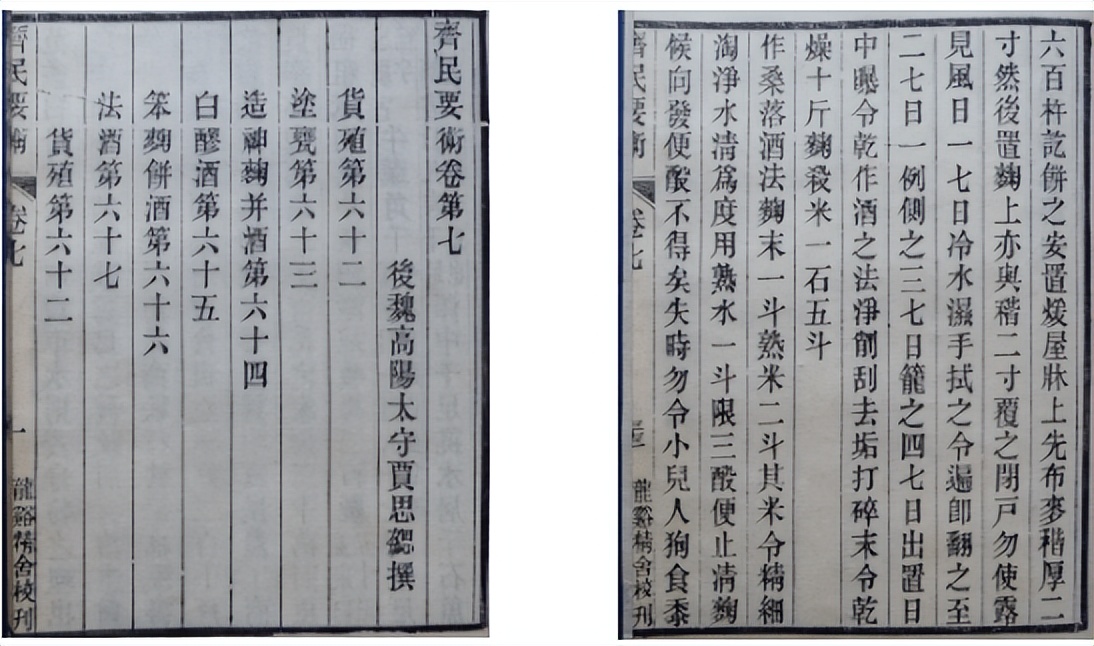 齊民要術卷第七
後魏高陽太守賈思勰撰
貨殖第六十二
塗甕第六十三
造神麴并酒第六十四
白醪酒第六十五
笨麴餅酒第六十六
法酒第六十七
貨殖第六十二
齊民要術 卷七 一 龍谿精舍校刊
六百杵訖餅之安置煖屋牀上先布麥稭厚二
寸然後置麴上亦與稭二寸覆之閉戶勿使露
見風日一七日冷水濕手拭之令遍卽翻之至
二七日一例側之三七日籠之四七日出置日
中曝令乾作酒之法淨削刮去垢打碎末令乾
燥十斤麴殺米一石五斗
作桑落酒法麴末一斗熟米二斗其米令精細
淘淨水清爲度用熟水一斗限三酸便止清麴
候向發便酸不得矣失時勿令小兒人狗食黍
齊民要術 卷七 龍谿精舍校刊